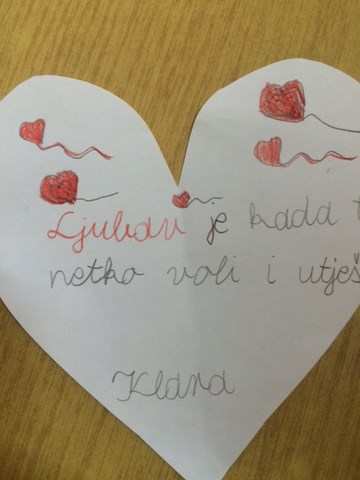 Ljubav je kada t
netko voli i utješ
Klara